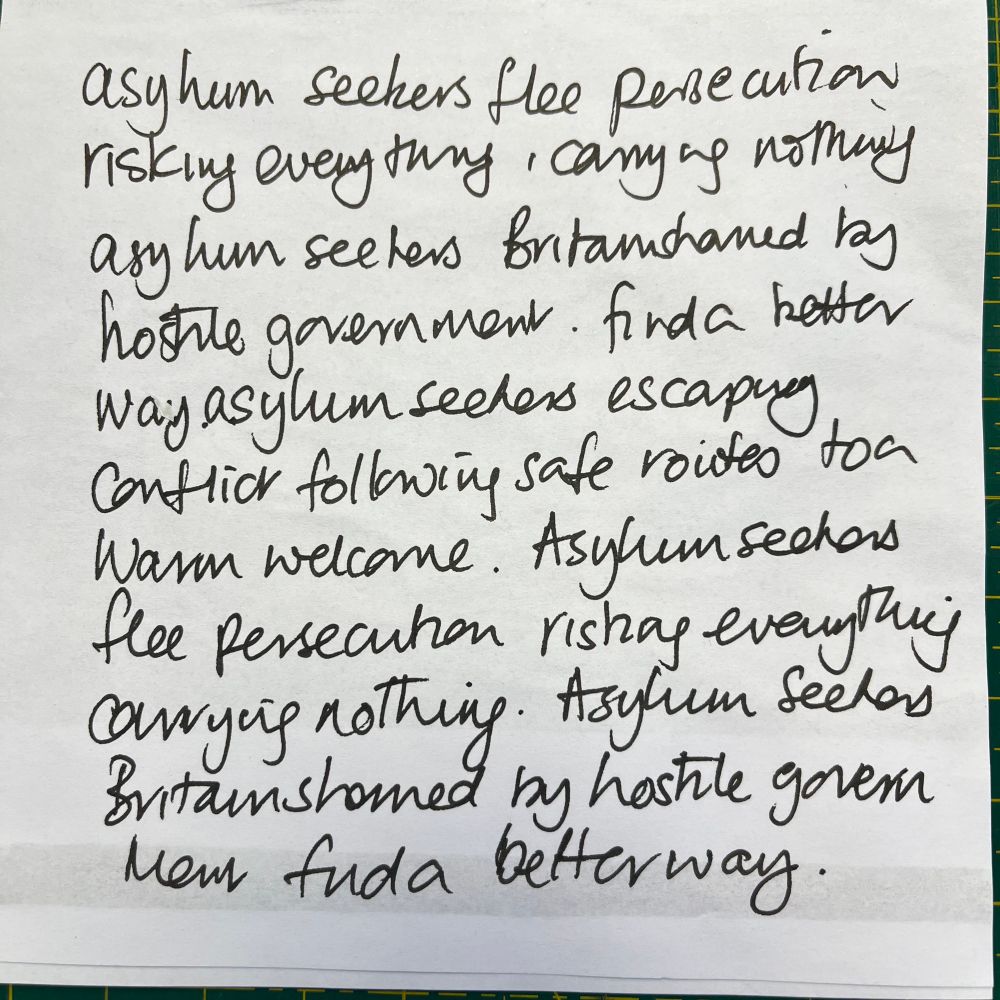 asylum seekers flee persecution
risking everything, carrying nothing
asylum seekers Britain shamed by
hostile government. find a better
way. asylum seekers escaping
conflict following safe routes to a
warm welcome. Asylum seekers
flee persecution risking everything
carrying nothing. Asylum Seekers
Britain shamed by hostile govern
ment find a better way.